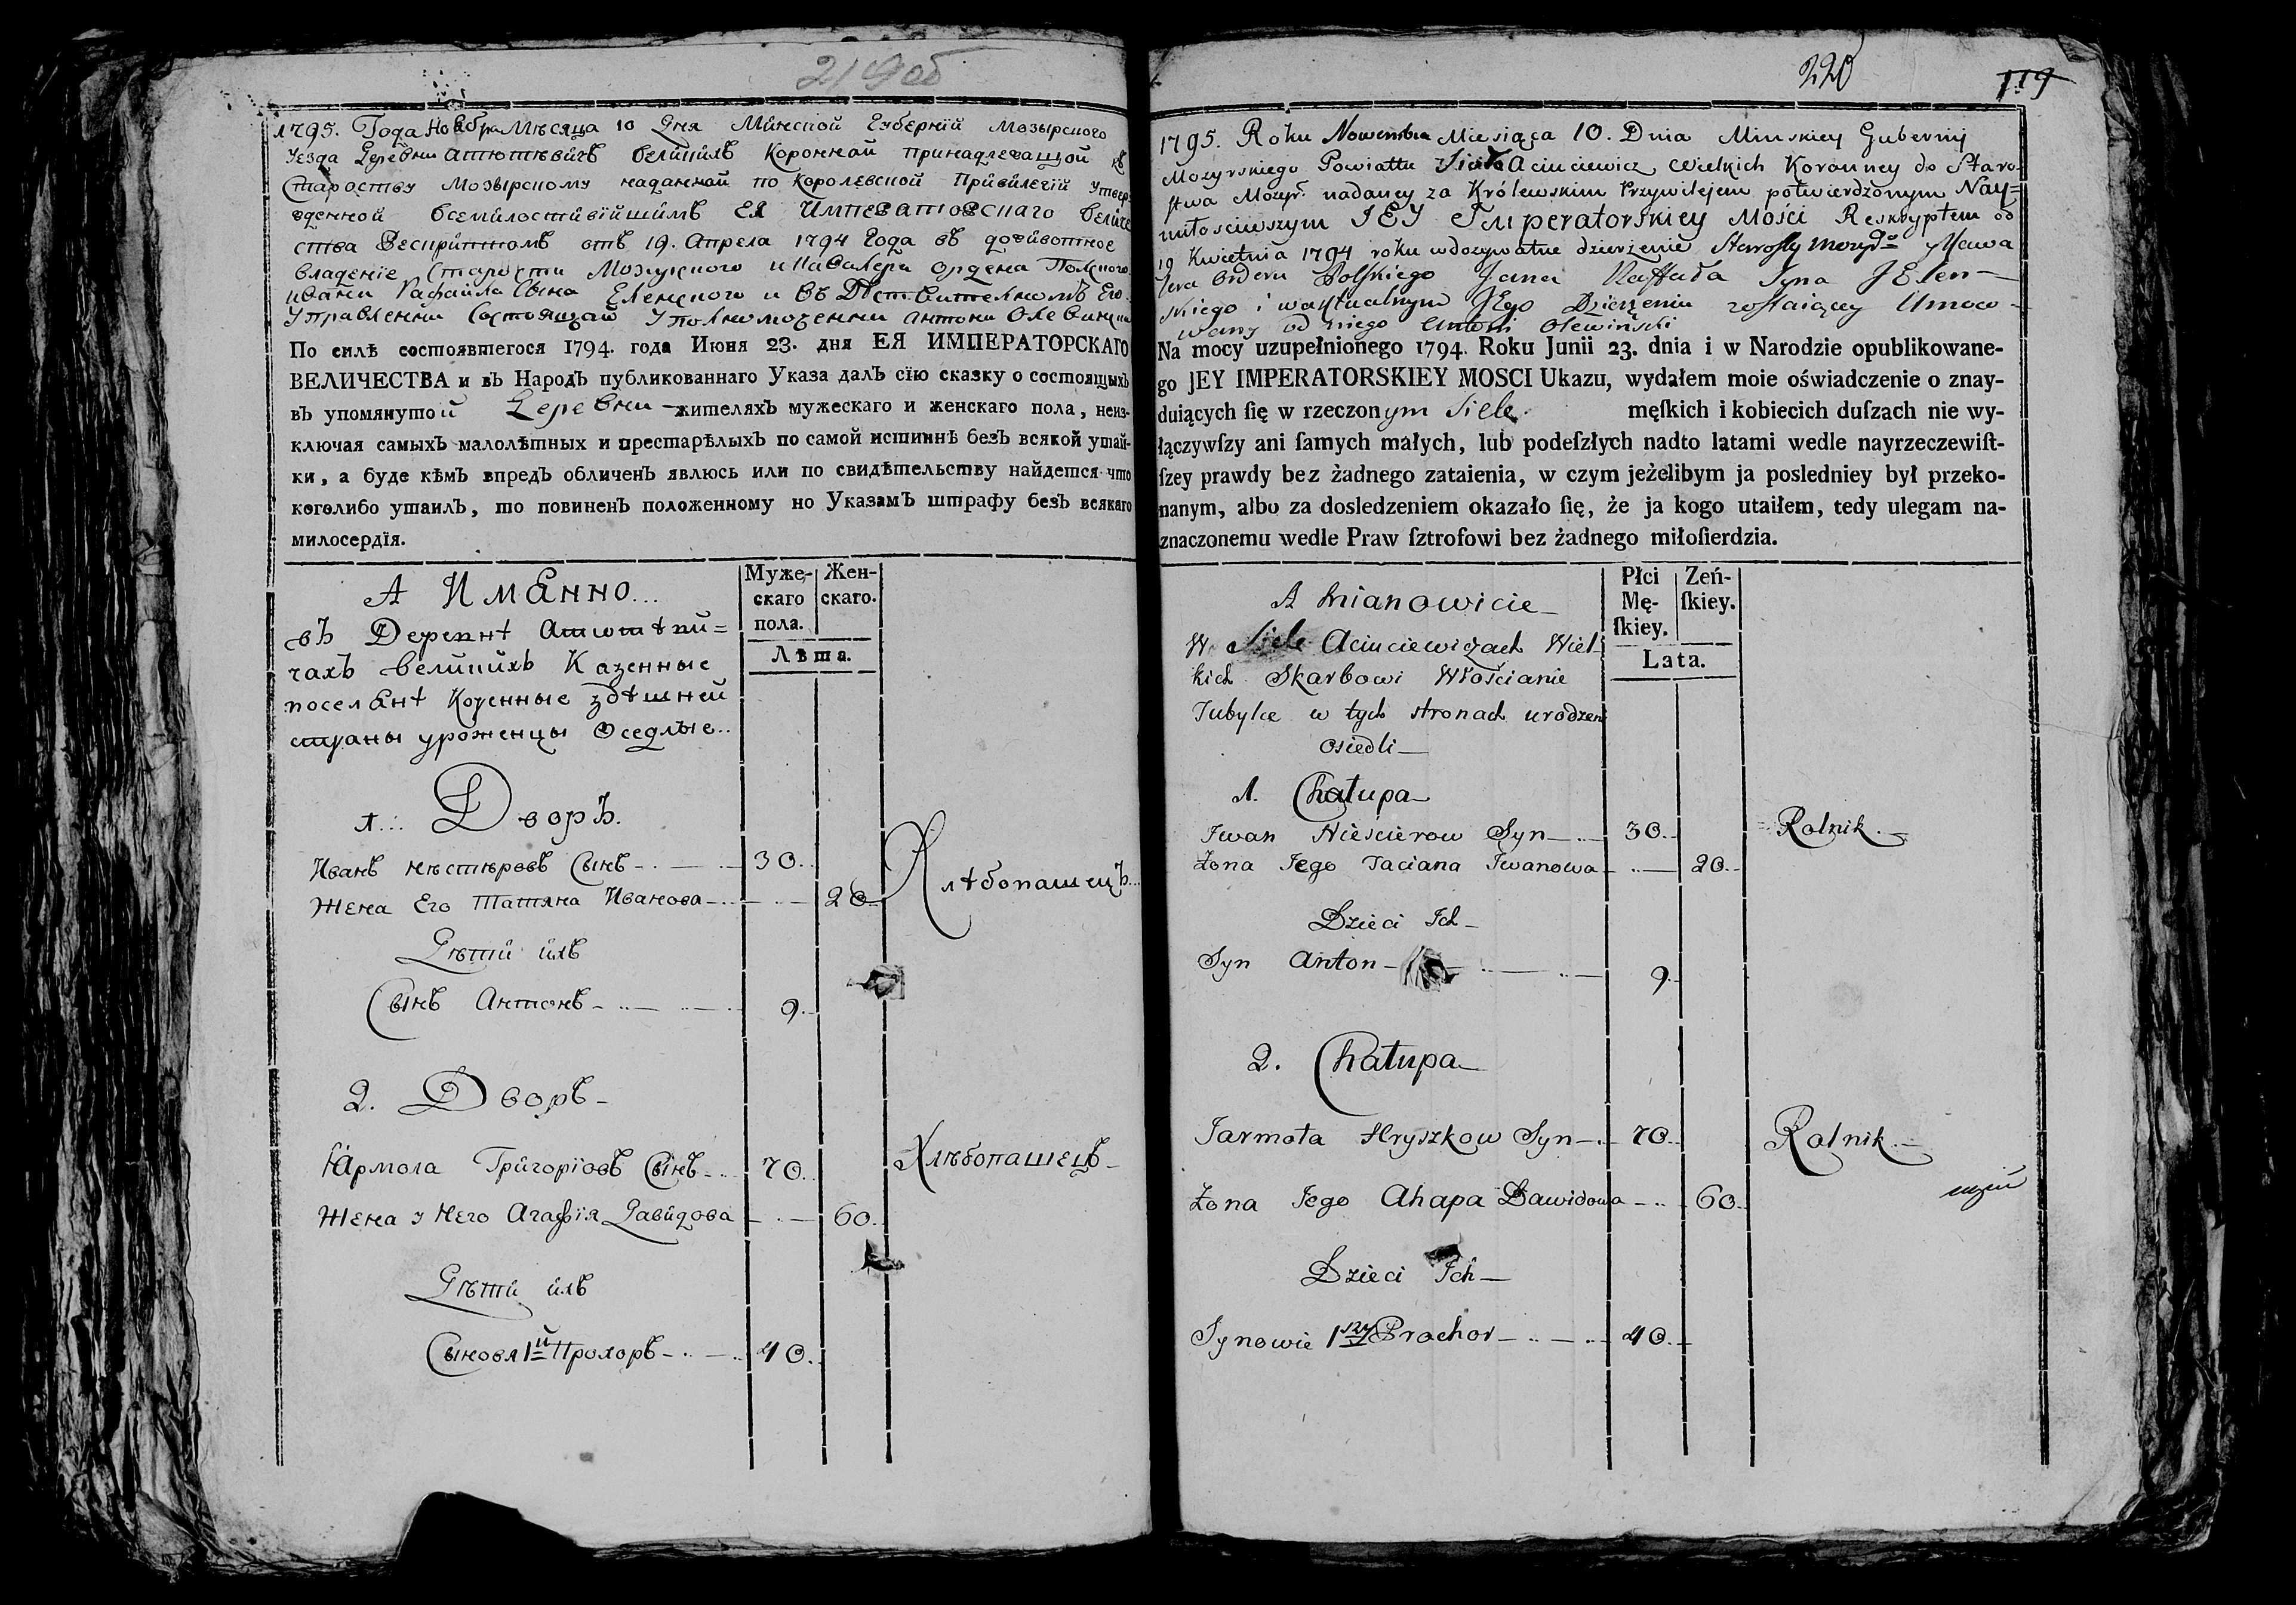 219 об
1795. Года Ноября Мѣсяца 10 Дня Минской Губернiй Мозырского
уезда Деревни Атютѣвичъ великихъ Коронной принадлежащой къ
Староству Мозырскому наданной по Королевской Привилегiй утвер-
жденной Всемилостивiйшимъ ЕЯ Императорскаго Величе
ства Рескриптомъ отъ 19. Апреля 1794 Года въ доживотное
владенiе Старости Мозырского и Кавалера Ордена Полского
Ивана Рафаила Сына Еленского и въ Дѣствителномъ Его
Управленiи Состоящай Уполномоченни Антони Олевински
По силѣ состоявшегося 1794. года Июня 23. дня ЕЯ ИМПЕРАТОРСКАГО
ВЕЛИЧЕСТВА и въ Народъ публикованнаго Указа далъ сїю сказку о состоящыхъ
въ упомянутой Деревни жителяхъ мужескаго и женскаго пола, неиз-
ключая самыхъ малолѣтныхъ и престарѣлыхъ по самой истиннѣ безъ всякой утай-
ки, а буде кѣмъ впредъ обличенъ явлюсь или по свидѣтельству найдется что
коголибо утаилъ, то повиненъ положенному по Указамъ штрафу безъ всякаго
милосердїя.
А Имянно...
Муже-
скаго
пола.
Жен-
скаго.
Лѣта.
въ Деревнѣ Атютѣви=
чахъ великихъ Казенные
поселянѣ Коренные здѣшней
страны уроженцы Оседлые..
1... Дворъ.
Иванъ Нѣстѣровъ Сынъ 30.
Хлѣбопашецъ...
Жена Его Татяна Иванова 20
Дѣти ихъ
Сынъ Антонъ 9.
2. Дворъ
Ярмола Григорiовъ Сынъ 70.
Хлѣбопашецъ
Жена у Него Агафiя Давидова 60.
Дѣти ихъ
Сыновя 1й Прохоръ 40.
220
119
1795. Roku Nowembra Miesiąca 10. Dnia Minskiey Gubernij
Mozyrskiego Powiattu Sioła Aciuciewicz Wielkich Koronney do Staro-
stwa Mozyr. nadaney za Królewskim Przywilejem potwierdzonym Nay=
miłościwszym JEY Imperatorskiey Mości Reskryptem od
19 Kwietnia 1794 roku w dozywotne dzierżenie Starosty Mozyrdo y Kawa
lera Orderu Polskiego Jana Raffała Syna JElen
skiego i w aktualnym JEgo Dzierżeniu zostaiącey Umoco
wany od niego Antoni Olewinski
Na mocy uzupełnionego 1794. Roku Junii 23. dnia i w Narodzie opublikowane-
go JEY IMPERATORSKIEY MOSCI Ukazu, wydałem moie oświadczenie o znay-
duiących ſię w rzeczonym Siele męſkich i kobiecich duſzach nie wy-
łączywſzy ani ſamych małych, lub podeſzłych nadto latami wedle nayrzeczewiſt-
ſzey prawdy bez żadnego zataienia, w czym jeżelibym ja posledniey był przeko-
nanym, albo za dosledzeniem okazało ſię, że ja kogo utaiłem, tedy ulegam na-
znaczonemu wedle Praw ſztrofowi bez żadnego miłoſierdzia.
A mianowicie
Płci
Mę-
ſkiey.
Zeń-
ſkiey.
Lata.
W Siele Aciuciewiczach Wiel
kich Skarbowi Włościanie
Tubylce w tych stronach urodzeni
Osiedli
1. Chałupa
Jwan Nieścierow Syn 30.
Rolnik.
Żona Jego Taciana Jwanowa 20.
Dzieci Ich
Syn Anton 9.
2. Chałupa
Jarmoła Hryszkow Syn 70.
Rolnik.
Żona Jego Ahapa Dawidowa 60.
Dzieci Ich
Synowie 1szy Prochor 40.